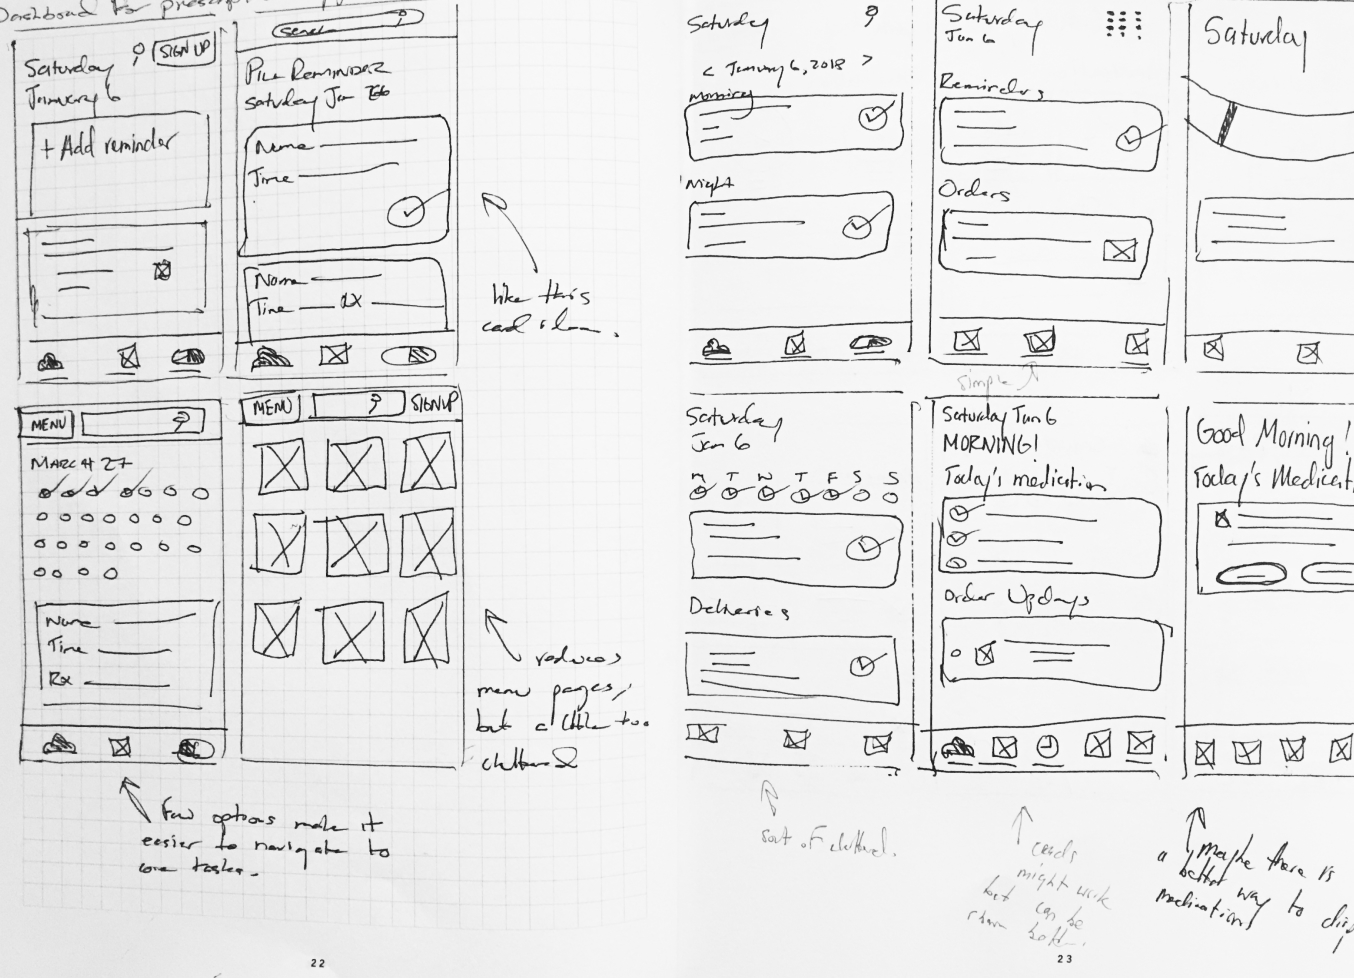 Dashboard for
Saturday
January 6
SIGN UP
+ Add reminder
search
PILL REMINDER
Saturday Jan
Name
Time
Name
Time
like this
card idea.
MENU
MARCH 27
Name
Time
Rx
MENU
SIGNUP
reduces
menu pages,
but a little too
cluttered
Few options make it
easier to navigate to
core tasks.
22
Saturday
< January 6, 2018 >
morning
Night
Saturday
Jan 6
Reminders
Orders
simple
Saturday
Saturday
Jan 6
M T W T F S S
Deliveries
sort of cluttered.
Saturday Jan 6
MORNING!
Today's medication
Order Updays
cards
might work
but can be
shown better.
Good Morning!
Today's Medicat
maybe there is
a better way to disp
medications
23